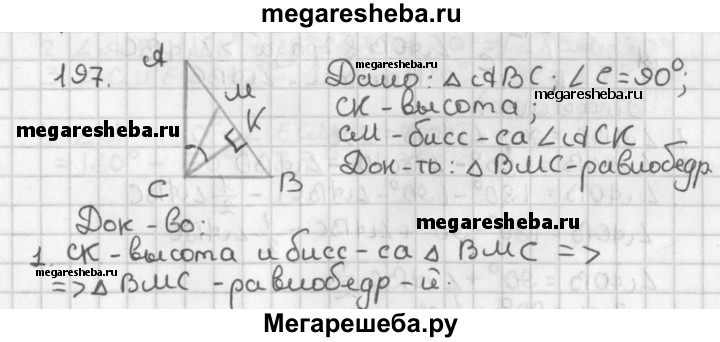 megaresheba.ru
197.
A
M
K
C
B
megaresheba.ru
megaresheba.ru
Дано: △ABC; ∠C=90°;
CK-высота;
CM-бисс-са ∠ACK
Док-ть: △BMC-равнобедр.
megaresheba.ru
Док-во:
megaresheba.ru
1. CK-высота и бисс-са △BMC =>
=> △BMC-равнобедр-й.
megaresheba.ru
Мегарешеба.ру